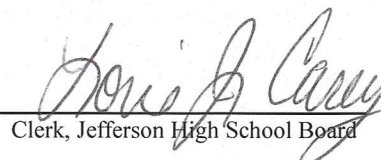 Carey
Clerk, Jefferson High School Board